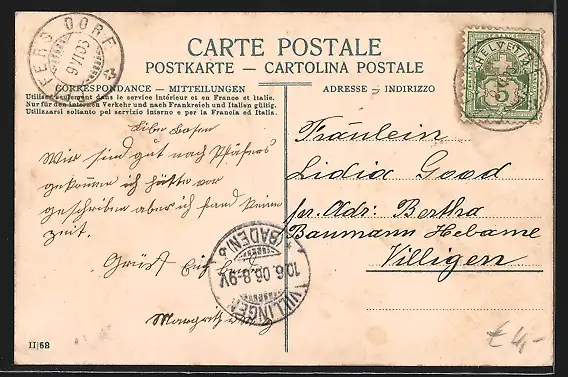 CARTE POSTALE
POSTKARTE — CARTOLINA POSTALE
CORRESPONDANCE — MITTEILUNGEN
ADRESSE — INDIRIZZO
Utiliser seulement dans le service intérieur et en France et Italie.
Nur für den internen Verkehr und nach Frankreich und Italien gültig.
Utilizzarsi soltanto pel servizio interno e per la Francia ed Italia.
HELVETIA
5
DORF
Wir sind gut nach Pfäfers
gekommen ich hätte vor
geschrieben aber ich fand keine
Zeit.
Grüst Euch
Margrith
Fräulein
Lidia Good
pr. Adr: Bertha
Baumann Hebame
Villigen
VILLINGEN
(BADEN)
10.6.06.8-9V
II|68
€ 4,-